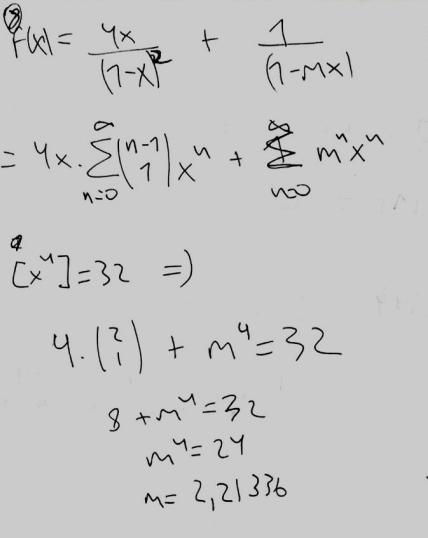 8
f(x) = 4x/(1-x)² + 1/(1-mx)
= 4x · ∑_{n=0}^{∞} (n-1 1) xⁿ + ∑_{n=0}^{∞} mⁿxⁿ
[x⁴] = 32 =)
4 · (2 1) + m⁴ = 32
8 + m⁴ = 32
m⁴ = 24
m = 2,21336